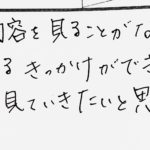 内容を見ることがな
るきっかけができ
見ていきたいと思